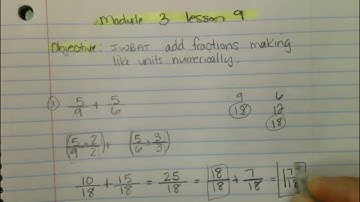 Module 3 lesson 9
Objective: IWBAT add fractions making
like units numerically.
① 5/9 + 5/6
9 6
18 12
18
(5/9 × 2/2) + (5/6 × 3/3)
10/18 + 15/18 = 25/18 = 18/18 + 7/18 = 1 7/18